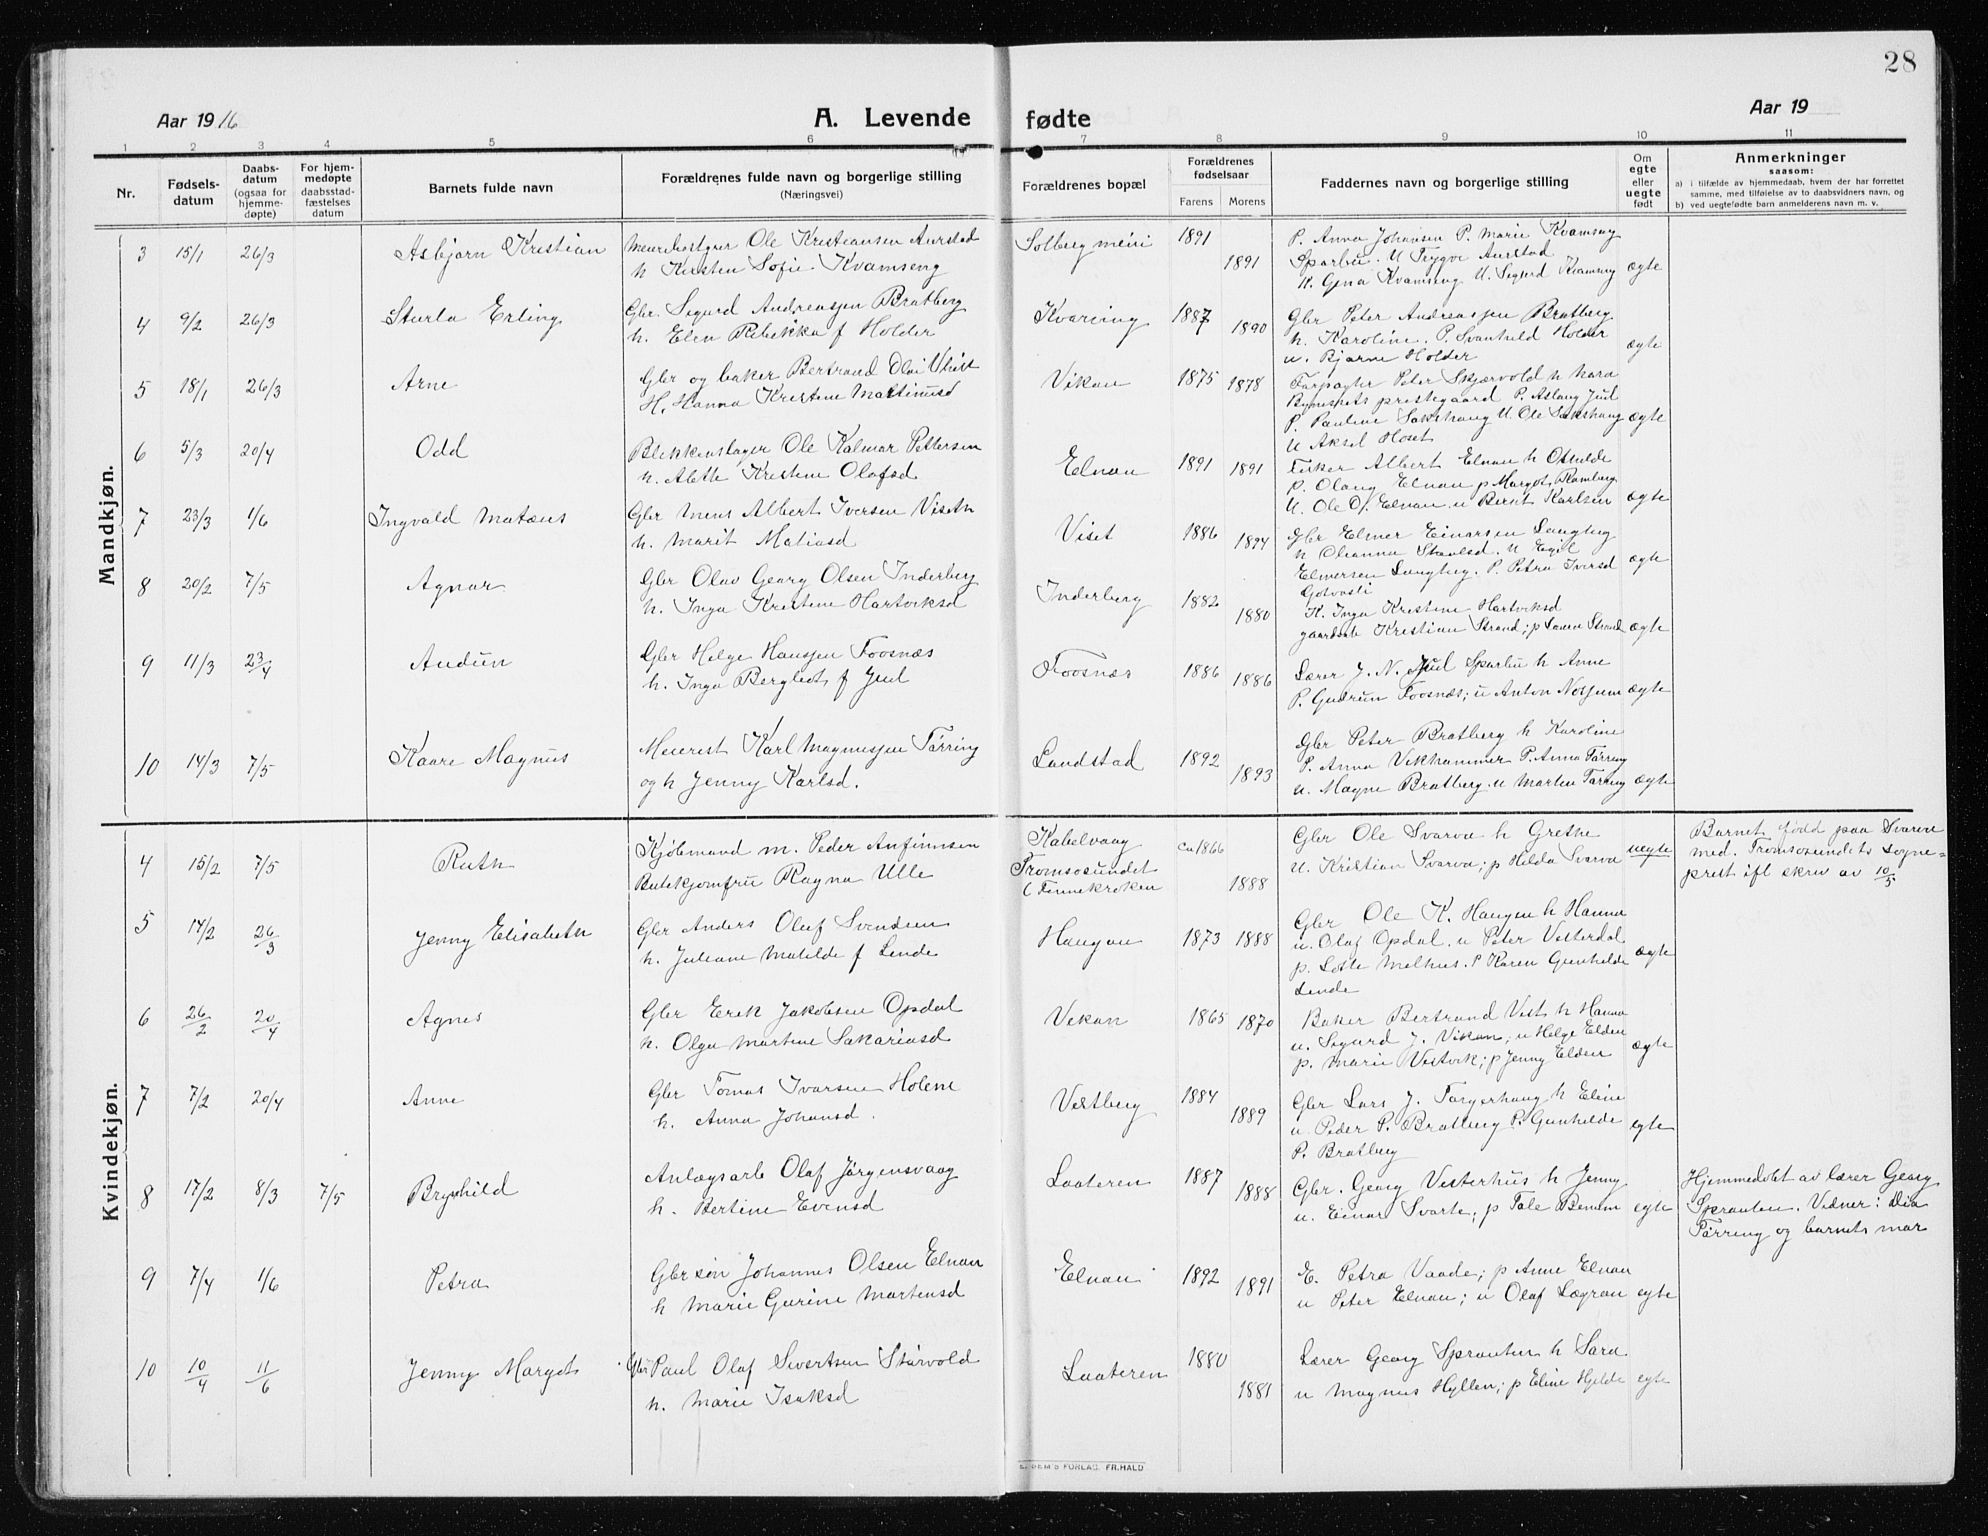 28
Aar 1916
A. Levende fødte
Aar 19
1 2 3 4 5 6 7 8 9 10 11
Nr.
Fødselsdatum
Daabsdatum (ogsaa for hjemmedøpte)
For hjemmedøpte daabsstadfæstelses datum
Barnets fulde navn
Forældrenes fulde navn og borgerlige stilling
(Næringsvei)
Forældrenes bopæl
Forældrenes fødselsaar
Farens Morens
Faddernes navn og borgerlige stilling
Om egte eller uegte født
Anmerkninger
saasom:
a) i tilfælde av hjemmedaab, hvem der har forrettet
samme, med tilføielse av to daabsvidners navn, og
b) ved uegtefødte barn anmelderens navn m. v.
Mandkjøn.
3 15/1 26/3 Asbjørn Kristian
Ole Kristiansen Aurstad
h Kirsten Sofie Kvamseng
Solberg meiri 1891 1891
P. Anna Johansen P. Marie Kvamseng
Sparbu. U Trygve Aurstad
K. Gina Kvamseng U. Sigurd Kvamseng ægte
4 9/2 26/3 Sturla Erling
Gbr. Sigurd Andreassen Bratberg
h. Elen Rebekka f Holder
Kvarving 1887 1890
Gbr Peter Andreassen Bratberg
h. Karoline. P. Svanhild Holder
u. Bjarne Holder ægte
5 18/1 26/3 Arne
Gbr og baker Bertrand Olai Vist
H. Hanna Kristine Martinusd
Vikan 1875 1878
Forpagter Peter Skjærvold h Mara
Bynesets prestegaard P. Aslaug Juul
P. Pauline Sakshaug U. Ole Sakshaug ægte
U Aksel Hoset
6 5/3 20/4 Odd
Blikkenslager Ole Kalmar Pettersen
h. Aleth Kristine Olafsd
Elnan 1891 1891
Fisker Albert Elnan h Othilde
p. Olaug Elnan p Margot Ramberg
U. Ole O. Elnan u Bernt Karlsen ægte
7 23/3 1/6 Ingvald Matæus
Gbr Mens Albert Iversen Viseth
h. Marit Matiasd
Viset 1886 1894
Gbr Elmer Einarsen Langberg
h Oleanna u Egil
Elmersen Langberg. P. Petra Iversd ægte
8 20/2 7/5 Agnar
Gbr Olav Georg Olsen Inderberg
h. Inga Kristine Hartviksd
Inderberg 1882 1880
K. Inga Kristine Hartviksd
Kristian Strand; p Strand ægte
9 11/3 23/4 Audun
Gbr Helge Hanssen Foosnæs
h. Inga Bergliot f Juul
Foosnæs 1886 1886
Lærer J. N. Juul Sparbu h Anne
P. Gudrun Foosnæs; u Anton Nossum ægte
10 14/3 7/5 Kaare Magnus
Meierist Karl Magnussen Tørring
og h Jenny Karlsd.
Landstad 1892 1893
Gbr Peter Bratberg h Karoline
P. Anna Vikhammer P. Anna Tørring
u. Magne Bratberg. u Martin Tørring ægte
Kvindekjøn.
4 15/2 7/5 Ruth
Kjøbmand m. Peder Anfinnsen
Butikjomfru Ragna Ulle
Kabelvaag
Tromsøsundet
(Finnekroken ca 1866 1888
Gbr Ole Svarva h Grethe
U. Kristian Svarva; p Hilda Svarva uegte
Barnet født paa Svaren
med. Tromsøsundets sogne=
prest ifl skriv av 10/5
5 14/2 26/3 Jenny Elisabeth
Gbr Anders Oluf Svendsen
h. Juliane Matilde f Linde
Haugan 1873 1888
Gbr Ole K. Haugen h Hanna
u. Olaf Opdal. u Peter Vesterdal
p. Lotte Melhus. P Karen Gunhilde ægte
Linde
6 26/2 20/4 Agnes
Gbr Erik Jakobsen Opdal
h. Olga Martine Sakariasd
Vikan 1865 1870
Baker Bertrand Vist h Hanna
u. Sigurd J. Vikan; u Helge Elden
p. Marie Vestvik; p Jenny Elden ægte
7 7/2 20/4 Anne
Gbr Tomas Ivarsen Holene
h. Anna Johansd.
Vestberg 1884 1889
Gbr Lars J. h Eline
u. Peder P. Bratberg P. Gunhilde egte
P. Bratberg
8 17/2 8/3 7/5 Brynhild
Anlægsarb Olaf Jørgensvaag
h. Bertine Evensd
Laateren 1887 1888
Gbr. Georg Vesterhus h Jenny
u. Einar Svarte; p Tale Benum egte
Hjemmedøbt av lærer Georg
Sprauten. Vidner: Dia
Tørring og barnets mor
9 7/4 1/6 Petra
Gbr søn Johannes Olsen Elnan
h Marie Gurine Martensd
Elnan 1892 1891
E. Petra Vaade; p Anne Elnan
u Peter Elnan; u Olaf Lægran egte
10 10/4 11/6 Jenny Margot
Gbr Paul Olaf Sivertsen Størvold
h. Marie Isaksd
Laateren 1880 1881
Lærer Georg Sprauten h Sara
u Magnus Hyllen; p Eline Hjelde egte
FORLAG. FR. HALD